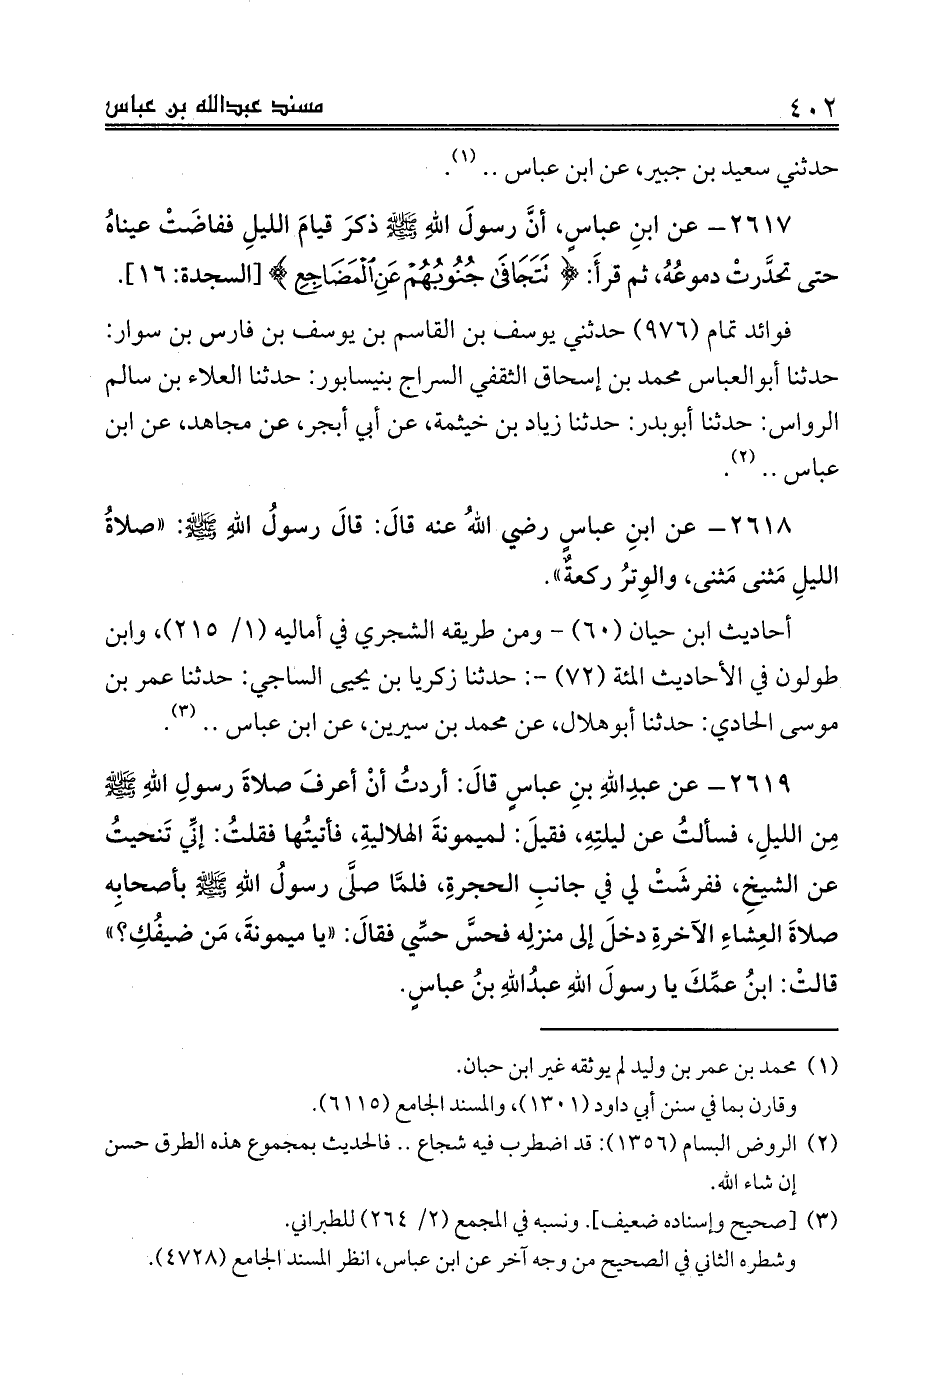 ٤٠٢ مسند عبدالله بن عباس
حدثني سعيد بن جبير، عن ابن عباس .. (١).
٢٦١٧ – عن ابنِ عباسٍ، أنَّ رسولَ اللهِ ﷺ ذكرَ قيامَ الليلِ ففاضَتْ عيناهُ
حتى تحدَّرتْ دموعُهُ، ثم قرأَ: ﴿ نَتَجَافَىٰ جُنُوبُهُمْ عَنِ ٱلْمَضَاجِعِ ﴾ [السجدة: ١٦].
فوائد تمام (٩٧٦) حدثني يوسف بن القاسم بن يوسف بن فارس بن سوار:
حدثنا أبوالعباس محمد بن إسحاق الثقفي السراج بنيسابور: حدثنا العلاء بن سالم
الرواس: حدثنا أبوبدر: حدثنا زياد بن خيثمة، عن أبي أبجر، عن مجاهد، عن ابن
عباس .. (٢).
٢٦١٨ – عن ابنِ عباسٍ رضي اللهُ عنه قالَ: قالَ رسولُ اللهِ ﷺ: «صلاةُ
الليلِ مَثنى مَثنى، والوِترُ ركعةٌ».
أحاديث ابن حيان (٦٠) - ومن طريقه الشجري في أماليه (١/ ٢١٥)، وابن
طولون في الأحاديث المئة (٧٢) -: حدثنا زكريا بن يحيى الساجي: حدثنا عمر بن
موسى الحادي: حدثنا أبوهلال، عن محمد بن سيرين، عن ابن عباس .. (٣).
٢٦١٩ – عن عبدِاللهِ بنِ عباسٍ قالَ: أردتُ أنْ أعرفَ صلاةَ رسولِ اللهِ ﷺ
مِن الليلِ، فسألتُ عن ليلتِهِ، فقيلَ: لميمونةَ الهلاليةِ، فأتيتُها فقلتُ: إنِّي تَنحيتُ
عن الشيخِ، ففرشَتْ لي في جانبِ الحجرةِ، فلمَّا صلَّى رسولُ اللهِ ﷺ بأصحابِه
صلاةَ العِشاءِ الآخرةِ دخلَ إلى منزلِه فحسَّ حسِّي فقالَ: «يا ميمونةَ، مَن ضيفُكِ؟»
قالتْ: ابنُ عمِّكَ يا رسولَ اللهِ عبدُاللهِ بنُ عباسٍ.
(١) محمد بن عمر بن وليد لم يوثقه غير ابن حبان.
وقارن بما في سنن أبي داود (١٣٠١)، والمسند الجامع (٦١١٥).
(٢) الروض البسام (١٣٥٦): قد اضطرب فيه شجاع .. فالحديث بمجموع هذه الطرق حسن
إن شاء الله.
(٣) [صحيح وإسناده ضعيف]. ونسبه في المجمع (٢/ ٢٦٤) للطبراني.
وشطره الثاني في الصحيح من وجه آخر عن ابن عباس، انظر المسند الجامع (٤٧٢٨).